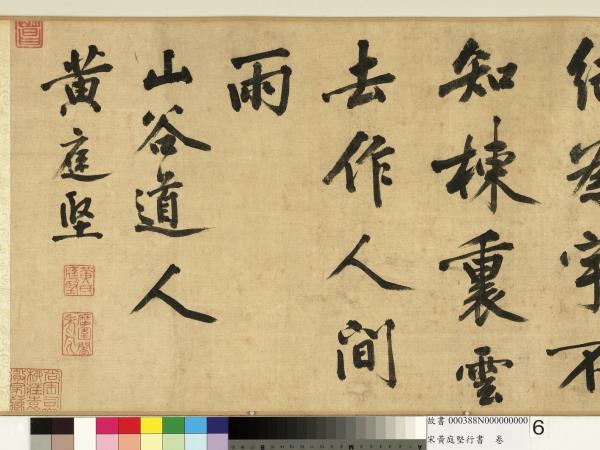 結為宇不
知棟裏雲
去作人間
雨
山谷道人
黃庭堅
故書 000388N000000000
宋黃庭堅行書 卷
6